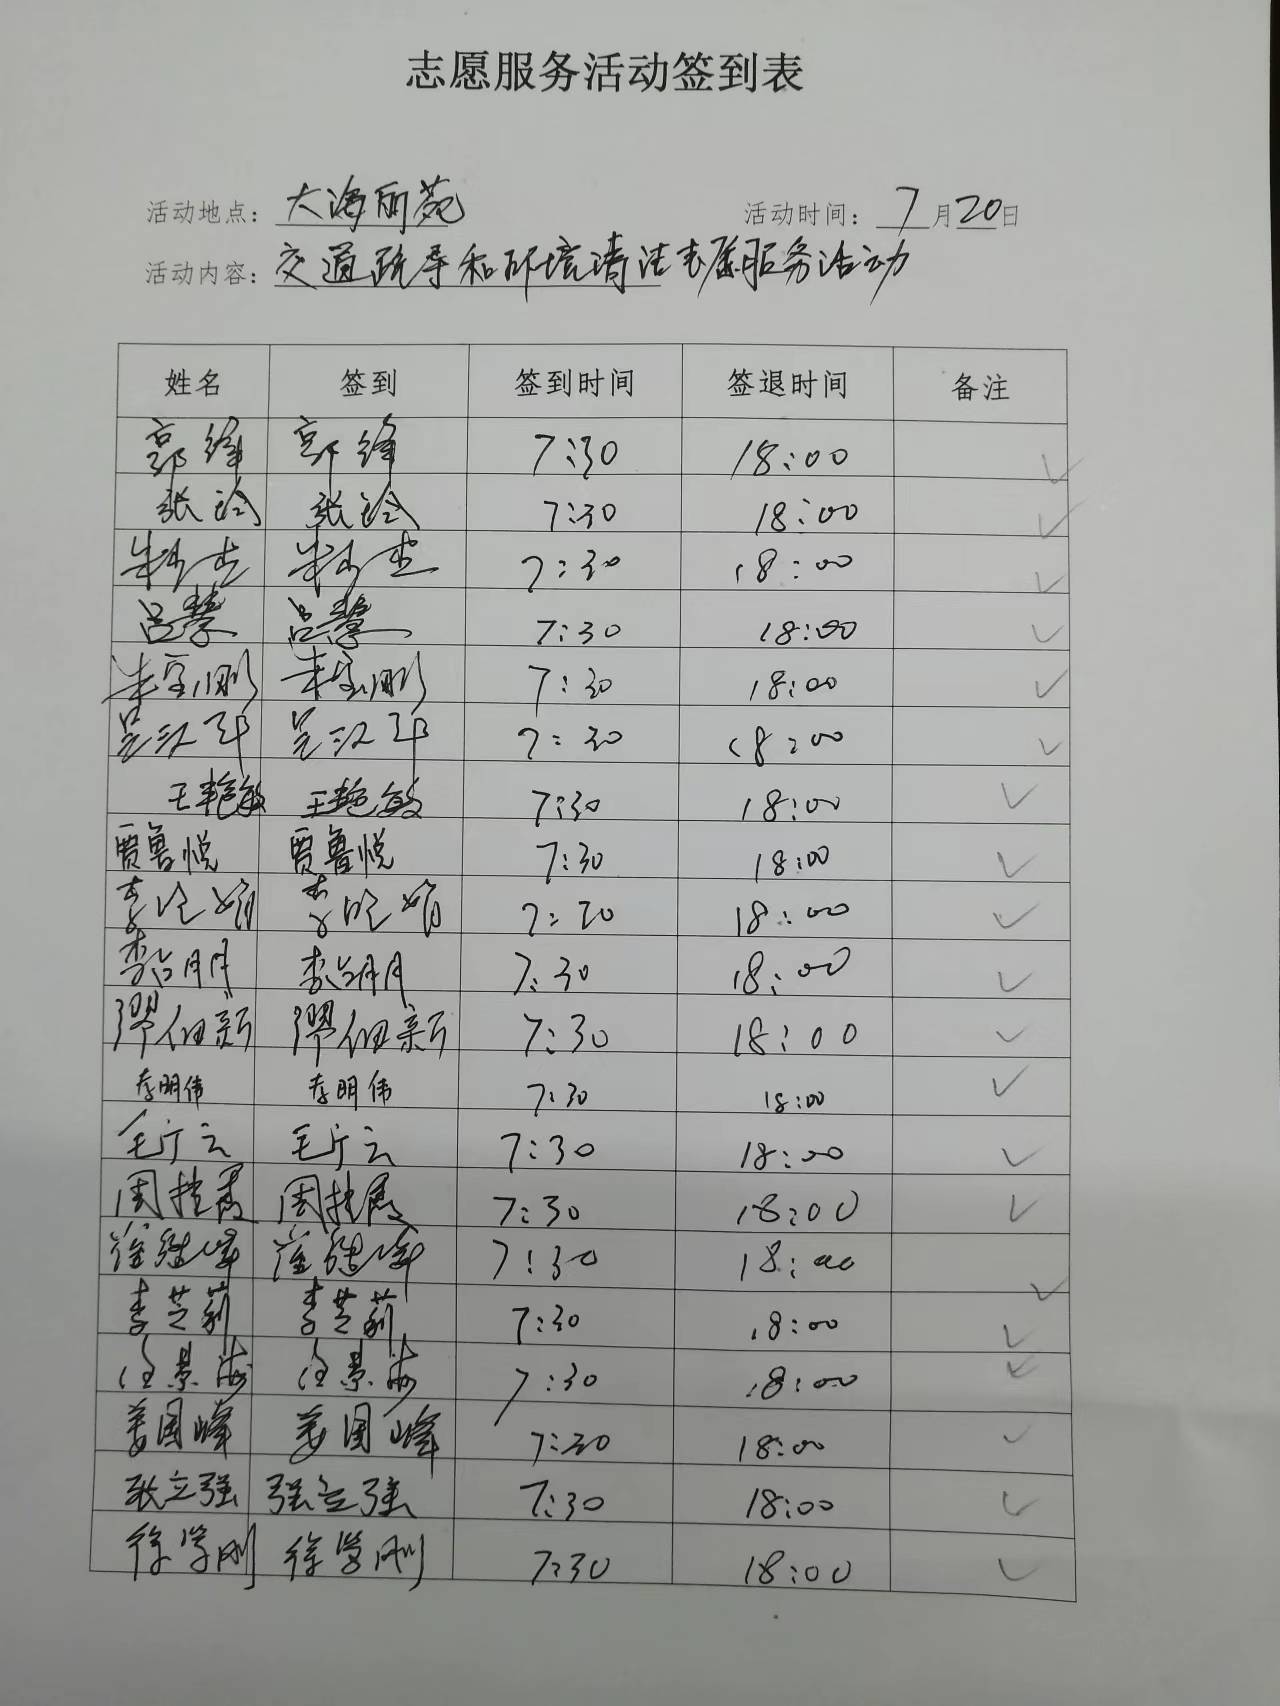 志愿服务活动签到表
活动地点：大海丽苑 活动时间：7月20日
活动内容：交通疏导和环境清洁志愿服务活动
姓名 签到 签到时间 签退时间 备注
郭绛 郭绛 7:30 18:00 ✓
张玲 张玲 7:30 18:00 ✓
7:30 18:00 ✓
吕慧 吕慧 7:30 18:00 ✓
朱宝刚 朱宝刚 7:30 18:00 ✓
吴江邛 吴江邛 7:30 18:00 ✓
王艳敏 王艳敏 7:30 18:00 ✓
贾鲁悦 贾鲁悦 7:30 18:00 ✓
李晓娟 李晓娟 7:30 18:00 ✓
李明月 李明月 7:30 18:00 ✓
缪伯新 缪伯新 7:30 18:00 ✓
李明伟 李明伟 7:30 18:00 ✓
毛广云 毛广云 7:30 18:00 ✓
周桂霞 周桂霞 7:30 18:00 ✓
崔继峰 崔继峰 7:30 18:00 ✓
李芝莉 李芝莉 7:30 18:00 ✓
任景海 任景海 7:30 18:00 ✓
姜国峰 姜国峰 7:30 18:00 ✓
张立强 张立强 7:30 18:00 ✓
徐学刚 徐学刚 7:30 18:00 ✓